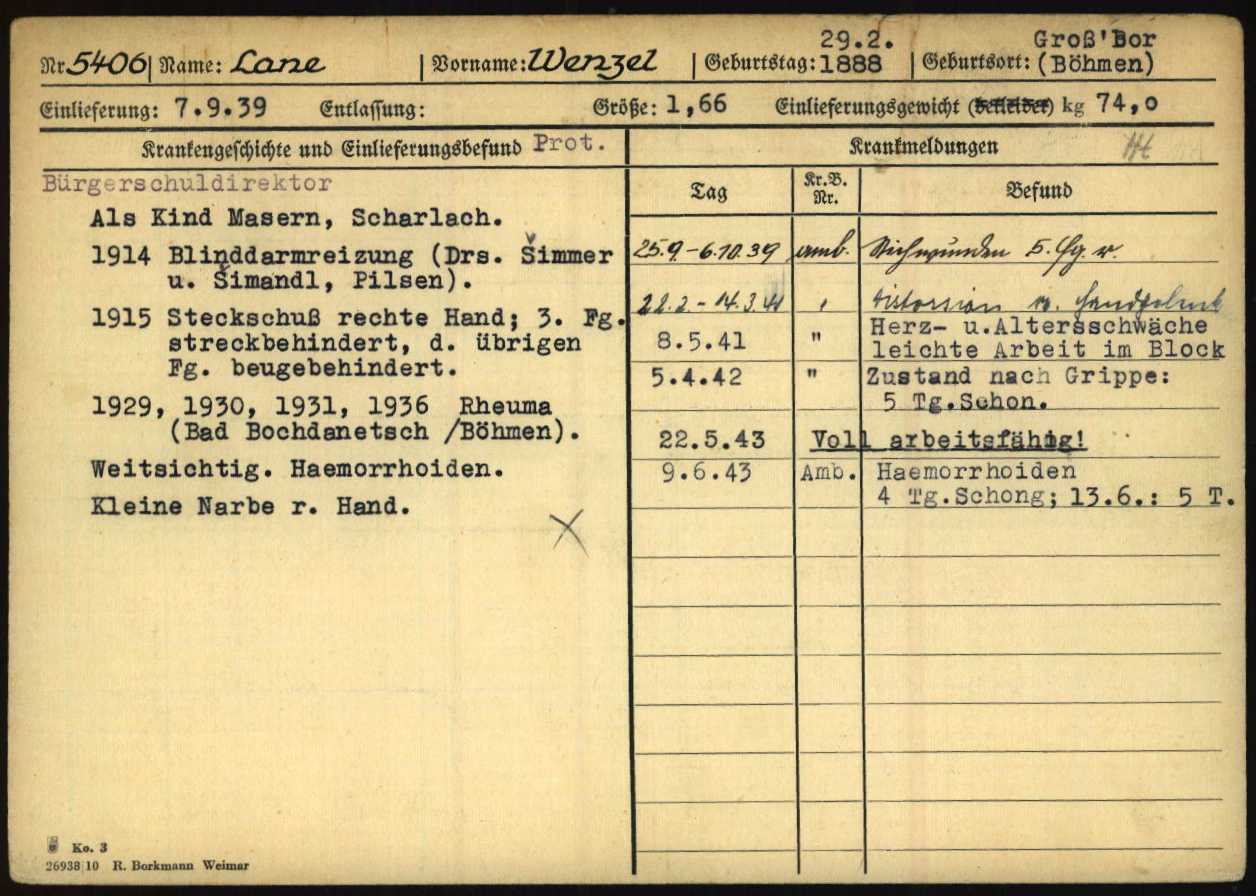 29.2. Groß'Bor
Nr 5406 Name: Lane Vorname: Wenzel Geburtstag: 1888 Geburtsort: (Böhmen)
Einlieferung: 7.9.39 Entlassung: Größe: 1,66 Einlieferungsgewicht (bekleidet) kg 74,0
Krankengeschichte und Einlieferungsbefund Prot.
Bürgerschuldirektor
Als Kind Masern, Scharlach.
1914 Blinddarmreizung (Drs. Šimmer
u. Šimandl, Pilsen).
1915 Steckschuß rechte Hand; 3. Fg.
streckbehindert, d. übrigen
Fg. beugebehindert.
1929, 1930, 1931, 1936 Rheuma
(Bad Bochdanetsch /Böhmen).
Weitsichtig. Haemorrhoiden.
Kleine Narbe r. Hand.
Krankmeldungen
Tag Kr.B. Nr. Befund
25.9.-6.10.39 amb. 5. Fg. r.
22.2.-14.3.41 " Distorsion r. Handgelenk
8.5.41 " Herz- u.Altersschwäche
leichte Arbeit im Block
5.4.42 " Zustand nach Grippe:
5 Tg.Schon.
22.5.43 Voll arbeitsfähig!
9.6.43 Amb. Haemorrhoiden
4 Tg.Schong; 13.6.: 5 T.
Ko. 3
26938 10 R. Borkmann Weimar